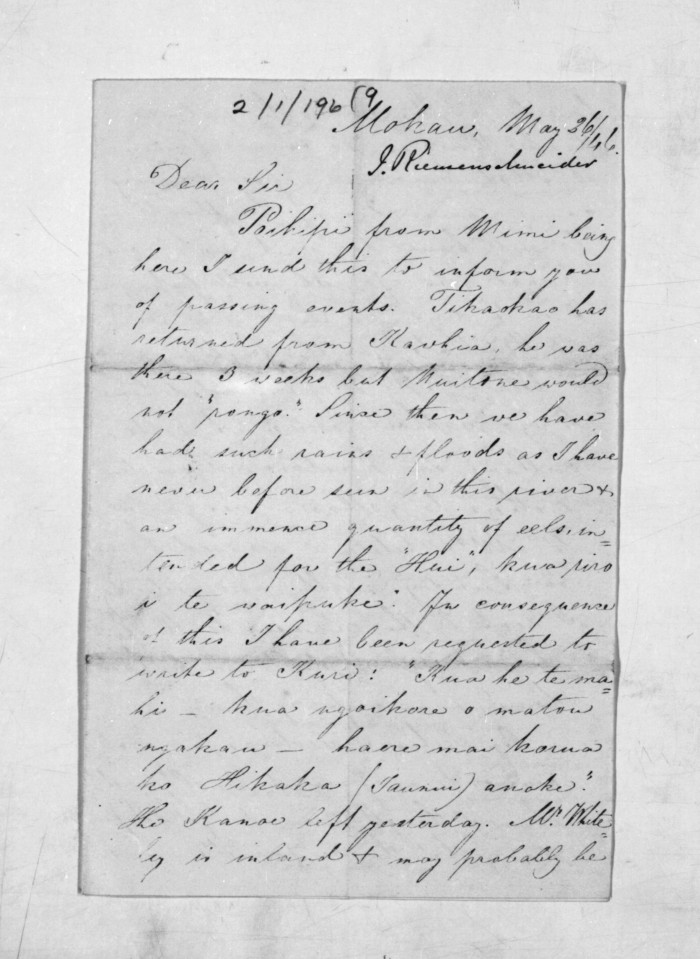 2/1/196 (9
Mokau, May 26/46.
J. Riemenschneider
Dear Sir
Paihipi from Mimi being
here I send this to inform you
of passing events. Tikaokao has
returned from Kawhia, he was
there 3 weeks but Muitone would
not "rongo." Since then we have
had such rains & floods as I have
never before seen in this river &
an immence quantity of eels in=
tended for the "Hui", "kua riro
i te waipuke". In consequence
of this I have been requested to
write to Kuri: "Kua he te ma=
hi – kua ngoikore o matou
ngakau – haere mai korua
ko Hikaka (Taunui) anake".
Te Kanae left yesterday. Mr. White=
ly is inland & may probably be